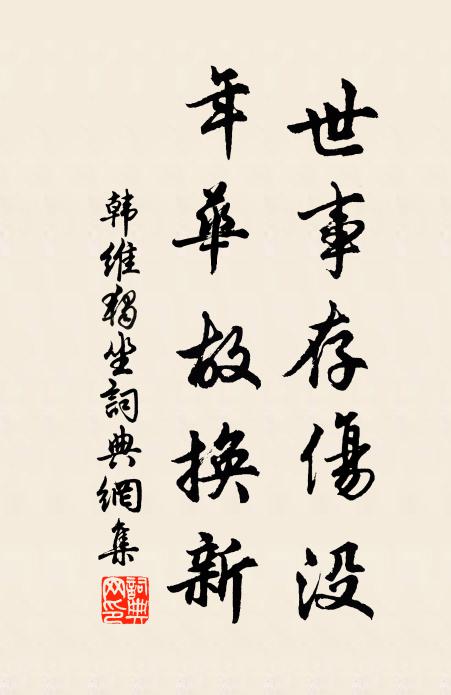 世事存傷没
年華故換新
韩維獨坐詞典網集
詞典网印